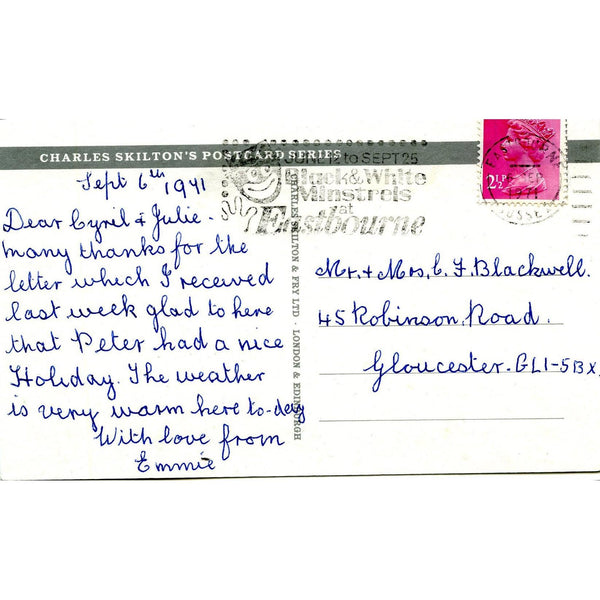 CHARLES SKILTON'S POSTCARD SERIES
JUNE 12 to SEPT 25
Black & White
Minstrels
at
Eastbourne
2½P
EASTBOURNE
1971
SUSSEX
Sept 6th 1971
Dear Cyril & Julie -
many thanks for the
letter which I received
last week glad to here
that Peter had a nice
Holiday. The weather
is very warm here to-day
With love from
Emmie
CHARLES SKILTON & FRY LTD · LONDON & EDINBURGH
Mr. & Mrs. C. F. Blackwell.
45 Robinson Road.
Gloucester. GL1-5BX